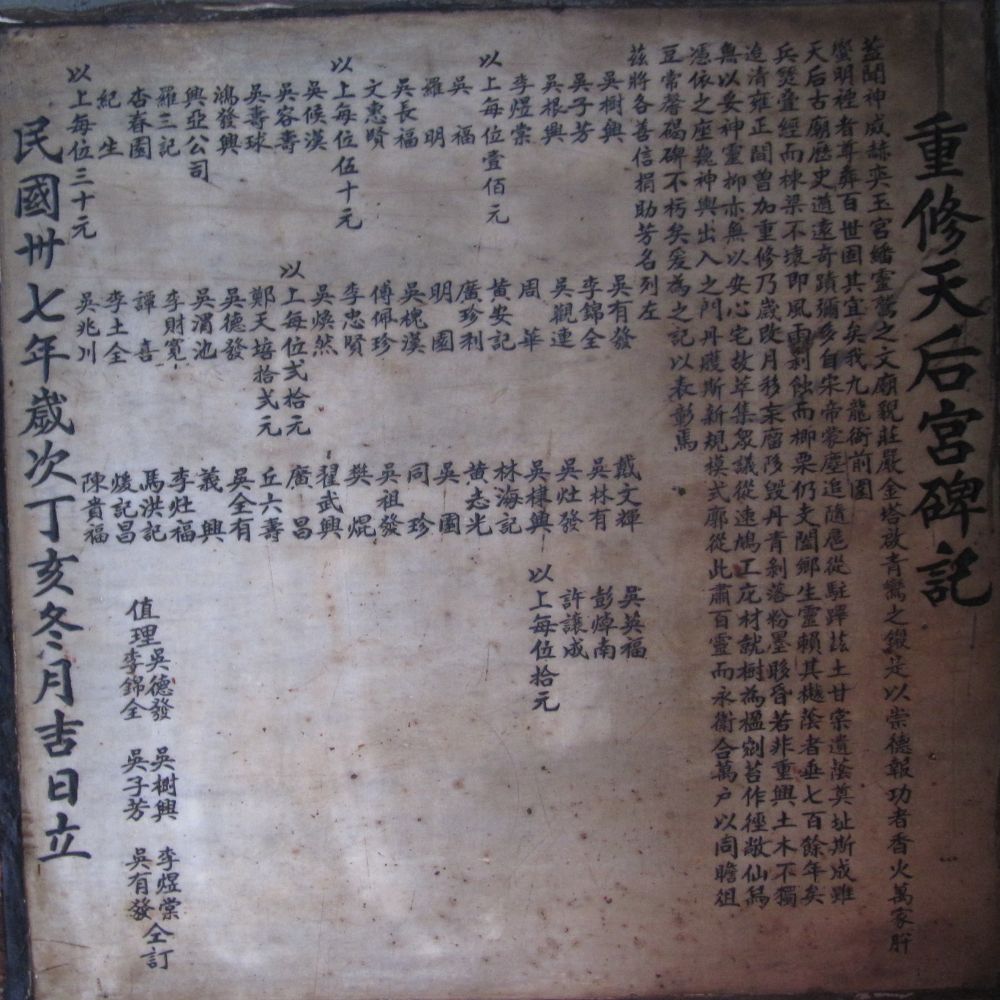 重修天后宮碑記
蓋聞神威赫奕玉宮蟠靈鷲之文廟貌莊嚴金塔放青鸞之緞是以崇德報功者香火萬家肸
蠁明禋者尊彝百世固其宜矣我九龍衙前圍
天后古廟歷史遒遠奇蹟彌多自宋帝蒙塵追隨扈從駐蹕茲土甘棠遺蔭奠址斯成雖
兵燹叠經而棟梁不壞即風雨剥蝕而柳栗仍支閤鄉生靈賴其樾蔭者垂七百餘年矣
迨清雍正間曾加重修乃歲改月移宋廇陊毀丹青剝落粉墨黟昏若非重興土木不獨
無以妥神靈抑亦無以安心宅故萃集眾議從速鳩工庀材就樹為楹剜苔作徑敞仙舄
憑依之座巍神輿出入之門丹雘斯新規模式廓從此肅百靈而永衛合萬户以同瞻俎
豆常馨碣碑不朽矣爰為之記以表彰焉
茲將各善信捐助芳名列左
吳樹興
吳子芳
吳根興
李煜棠
以上每位壹佰元
吳福
羅明
吳長福
文惠賢
以上每位伍十元
吳候漢
吳容壽
吳壽球
鴻發興
興亞公司
羅三記
杏春園
紀生
以上每位三十元
吳有發
李錦全
吳觀連
周華
黃安記
廣珍利
明園
吳槐漢
傅佩珍
李忠賢
吳煥然
以上每位弍拾元
鄭天培拾弍元
吳德發
吳渭池
李財寬
譚喜
李土全
吳兆川
戴文輝
吳林有
吳灶發
吳棣興
林海記
黃志光
吳園
同珍
吳祖發
樊焜
翟武興
廣昌
丘六壽
吳全有
義興
李灶福
馬洪記
煖記昌
陳貴福
吳英福
彭焯南
許讓成
以上每位拾元
值理 吳德發 吳樹興 李煜棠
李錦全 吳子芳 吳有發 仝訂
民國卅七年歲次丁亥冬月吉日立